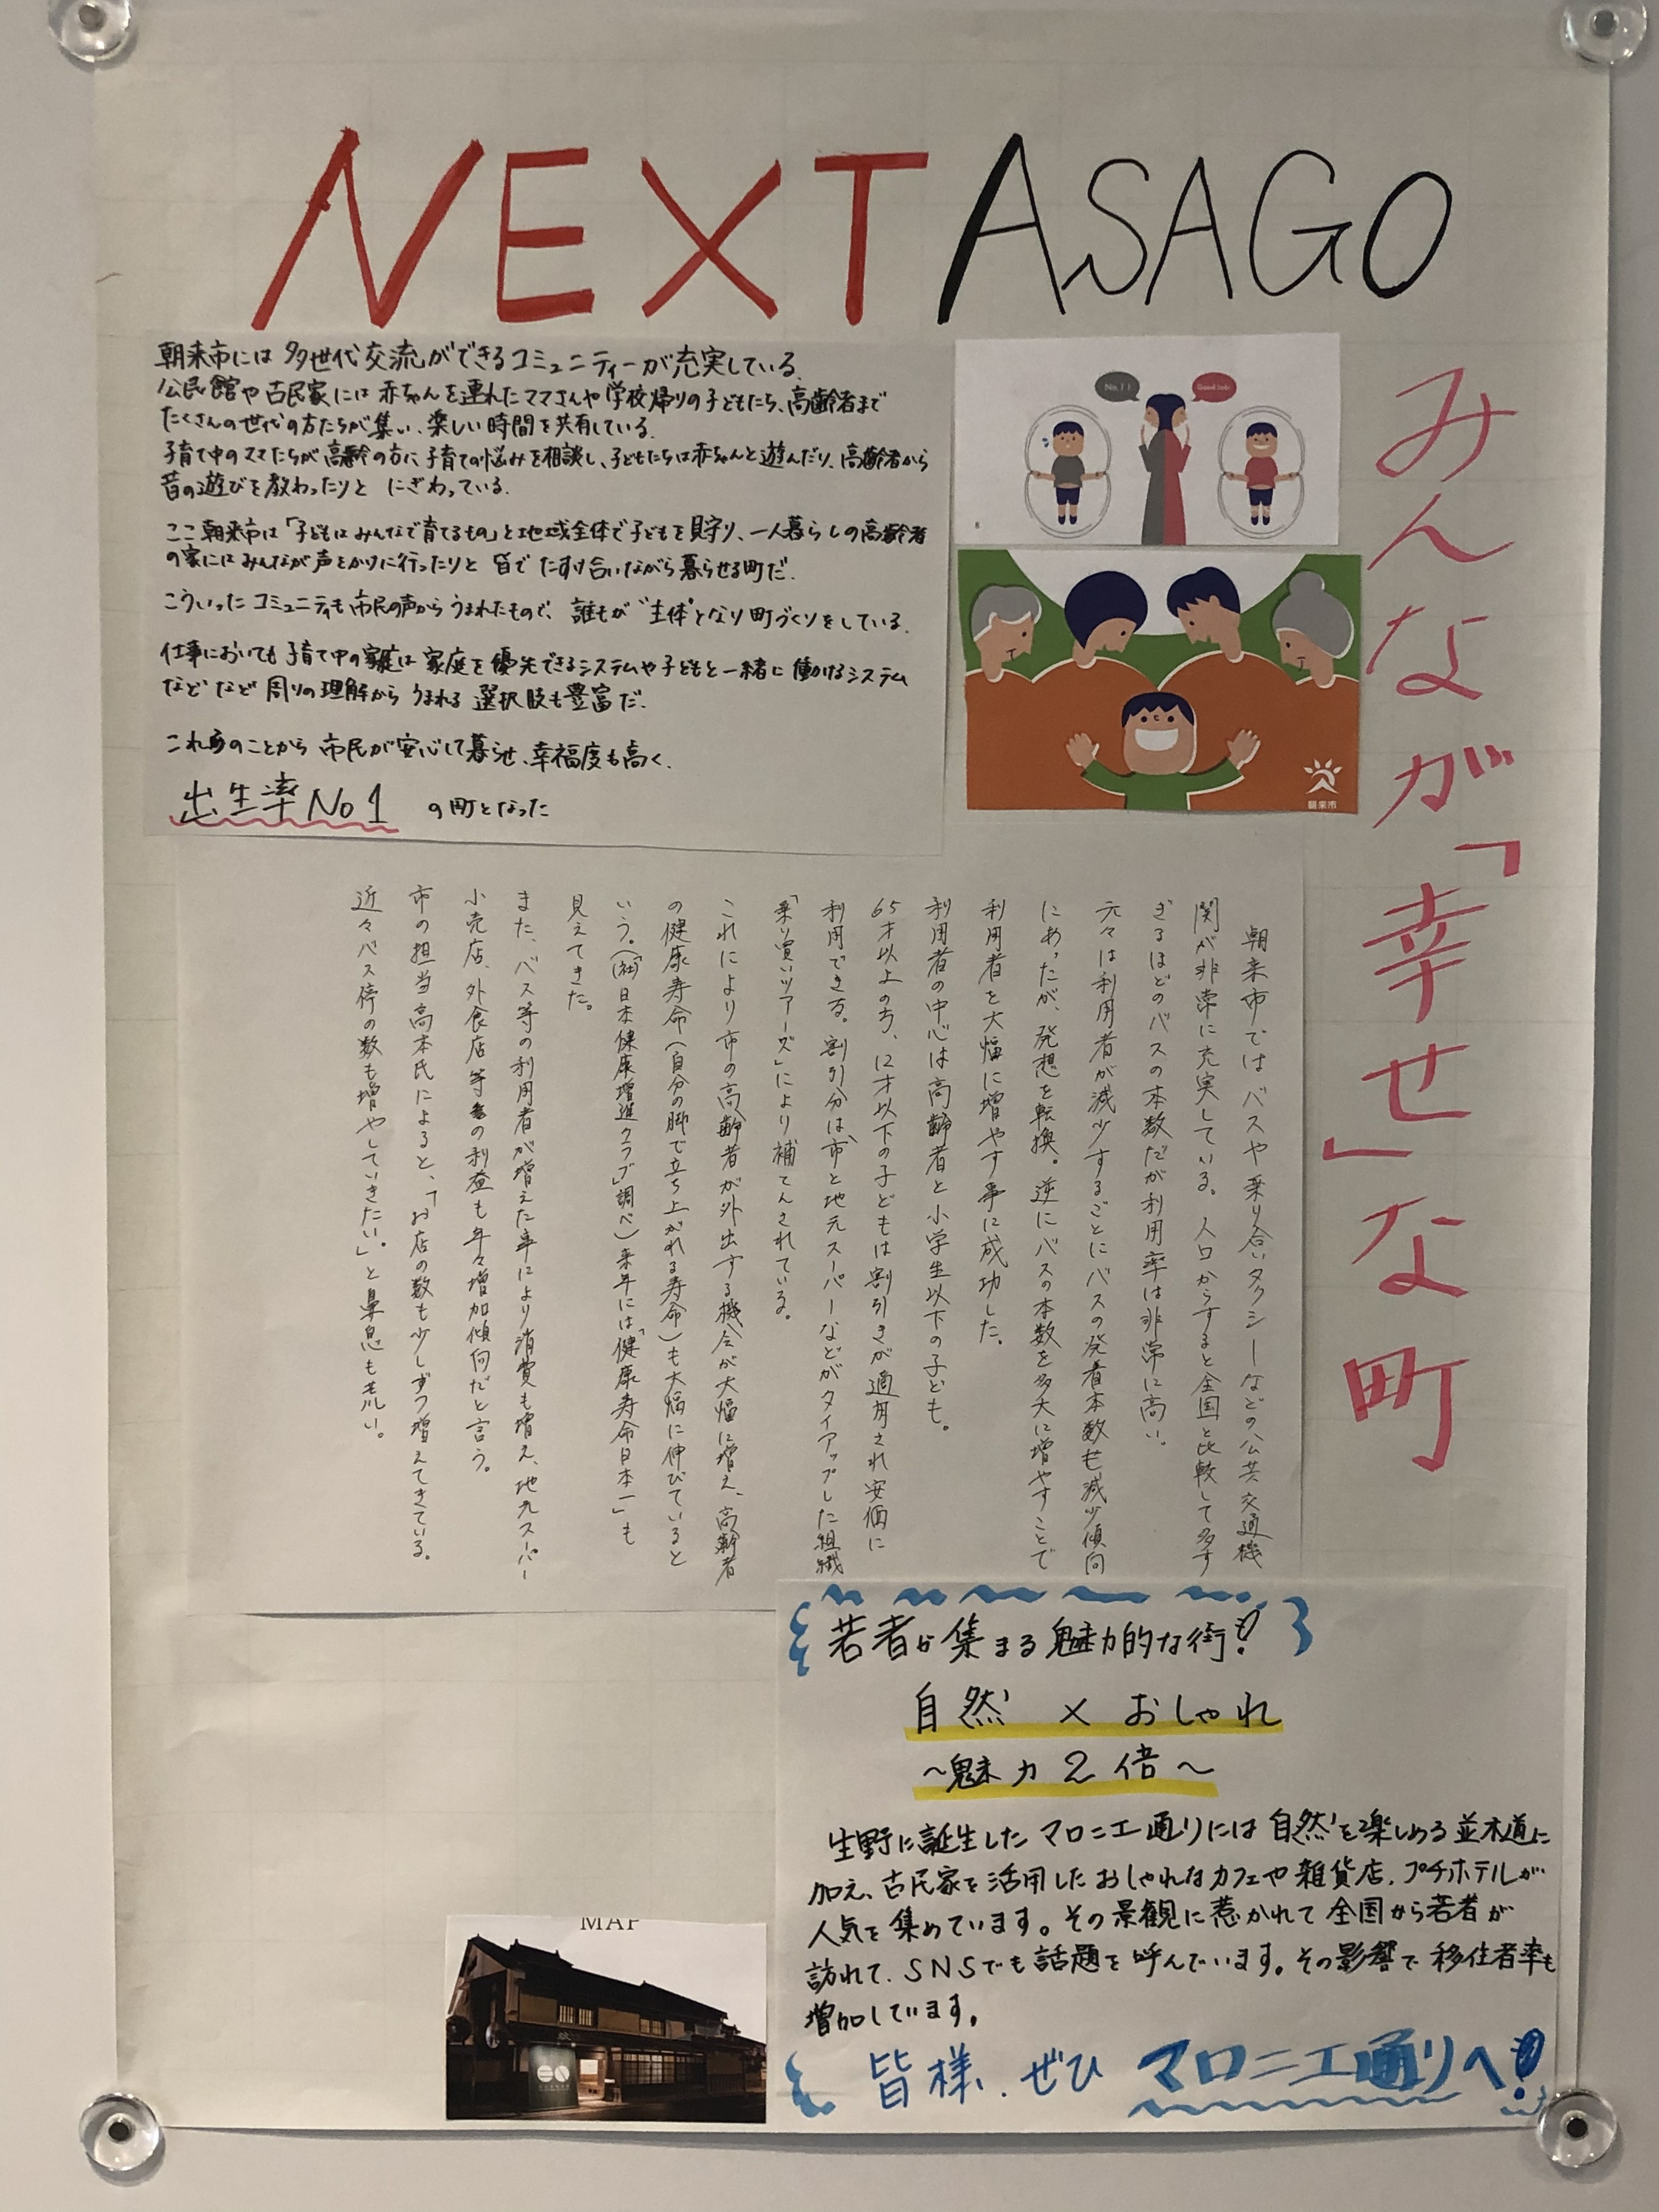 NEXT ASAGO
みんなが「幸せ」な町
朝来市には多世代交流ができるコミュニティーが充実している。
公民館や古民家には赤ちゃんを連れたママさんや学校帰りの子どもたち、高齢者まで
たくさんの世代の方たちが集い、楽しい時間を共有している。
子育て中のママたちが高齢の方に子育ての悩みを相談し、子どもたちは赤ちゃんと遊んだり、高齢者から
昔の遊びを教わったりと にぎわっている。
ここ朝来市は「子どもはみんなで育てるもの」と地域全体で子どもを見守り、一人暮らしの高齢者
の家にはみんなが声をかけに行ったりと 皆で たすけ合いながら暮らせる町だ。
こういったコミュニティも市民の声からうまれたもので、誰もが"主体"となり町づくりをしている。
仕事においても子育て中の家庭は家庭を優先できるシステムや子どもと一緒に働けるシステム
などなど周りの理解からうまれる選択肢も豊富だ。
これらのことから市民が安心して暮らせ、幸福度も高く、
出生率No1 の町となった
No.1!
Good Job
朝来市
朝来市ではバスや乗り合いタクシーなどの公共交通機
関が非常に充実している。人口からすると全国と比較して多す
ぎるほどのバスの本数だが利用率は非常に高い。
元々は利用者が減少するごとにバスの発着本数も減少傾向
にあったが、発想を転換。逆にバスの本数を多大に増やすことで
利用者を大幅に増やす事に成功した。
利用者の中心は高齢者と小学生以下の子ども。
65才以上の方、12才以下の子どもは割引きが適用され安価に
利用できる。割引分は、市と地元スーパーなどがタイアップした組織
「乗り買いツアーズ」により補てんされている。
これにより市の高齢者が外出する機会が大幅に増え、高齢者
の健康寿命(自分の脚で立ち上がれる寿命)も大幅に伸びていると
いう。(「(社)日本健康増進クラブ」調べ)来年には「健康寿命日本一」も
見えてきた。
また、バス等の利用者が増えた事により消費も増え、地元スーパー
小売店、外食店等の利益も年々増加傾向だと言う。
市の担当高本氏によると、「お店の数も少しずつ増えてきている。
近々バス停の数も増やしていきたい。」と鼻息も荒い。
若者が集まる魅力的な街!
自然 × おしゃれ
〜魅力2倍〜
生野に誕生したマロニエ通りには自然を楽しめる並木道に
加え、古民家を活用したおしゃれなカフェや雑貨店、プチホテルが
人気を集めています。その景観に惹かれて全国から若者が
訪れて、SNSでも話題を呼んでいます。その影響で移住者率も
増加しています。
皆様、ぜひ マロニエ通りへ!
MAP